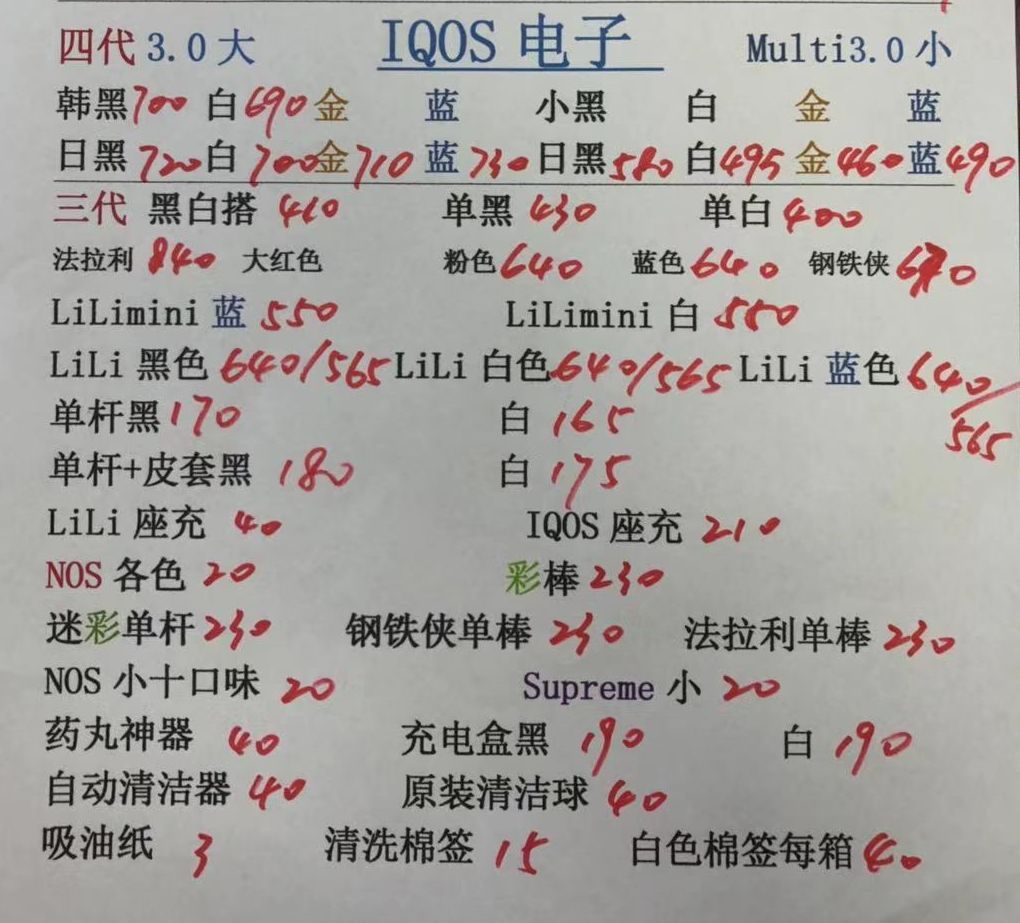 四代 3.0大 IQOS 电子 Multi3.0 小
韩黑700 白690 金 蓝 小黑 白 金 蓝
日黑720 白700 金710 蓝730 日黑580 白495 金460 蓝490
三代 黑白搭 410 单黑 430 单白 400
法拉利 840 大红色 粉色 640 蓝色 640 钢铁侠
LiLimini 蓝 550 LiLimini 白 550
LiLi 黑色 640/565 LiLi 白色 640/565 LiLi 蓝色 640/
565
单杆黑 170 白 165
单杆+皮套黑 180 白 175
LiLi 座充 40 IQOS 座充 210
NOS 各色 20 彩棒 230
迷彩单杆 230 钢铁侠单棒 230 法拉利单棒 230
NOS 小十口味 20 Supreme 小 20
药丸神器 40 充电盒黑 190 白 190
自动清洁器 40 原装清洁球 40
吸油纸 3 清洗棉签 15 白色棉签每箱 40